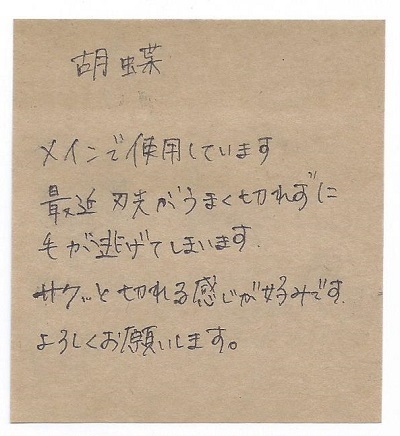 胡蝶
メインで使用しています
最近 刃先がうまく切れずに
毛が逃げてしまいます.
サクッと切れる感じが好みです.
よろしくお願いします。